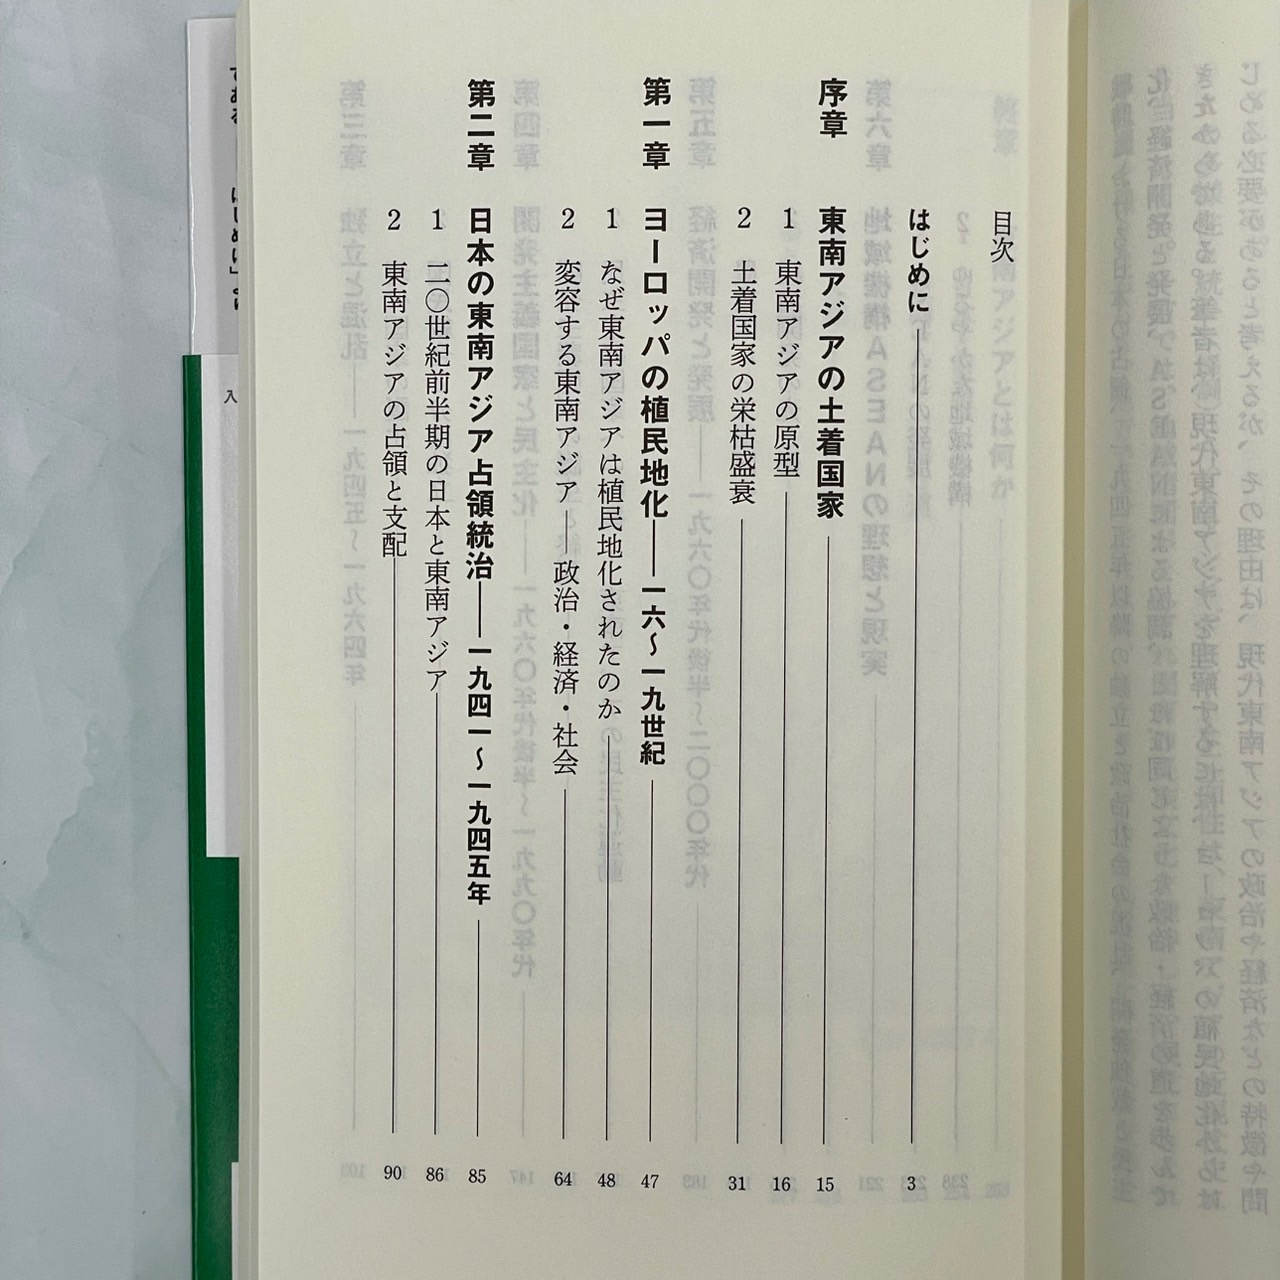 目次
はじめに 3
序章 東南アジアの土着国家 15
1 東南アジアの原型 16
2 土着国家の栄枯盛衰 31
第一章 ヨーロッパの植民地化――一六〜一九世紀 47
1 なぜ東南アジアは植民地化されたのか 48
2 変容する東南アジア――政治・経済・社会 64
第二章 日本の東南アジア占領統治――一九四一〜一九四五年 85
1 二〇世紀前半期の日本と東南アジア 86
2 東南アジアの占領と支配 90